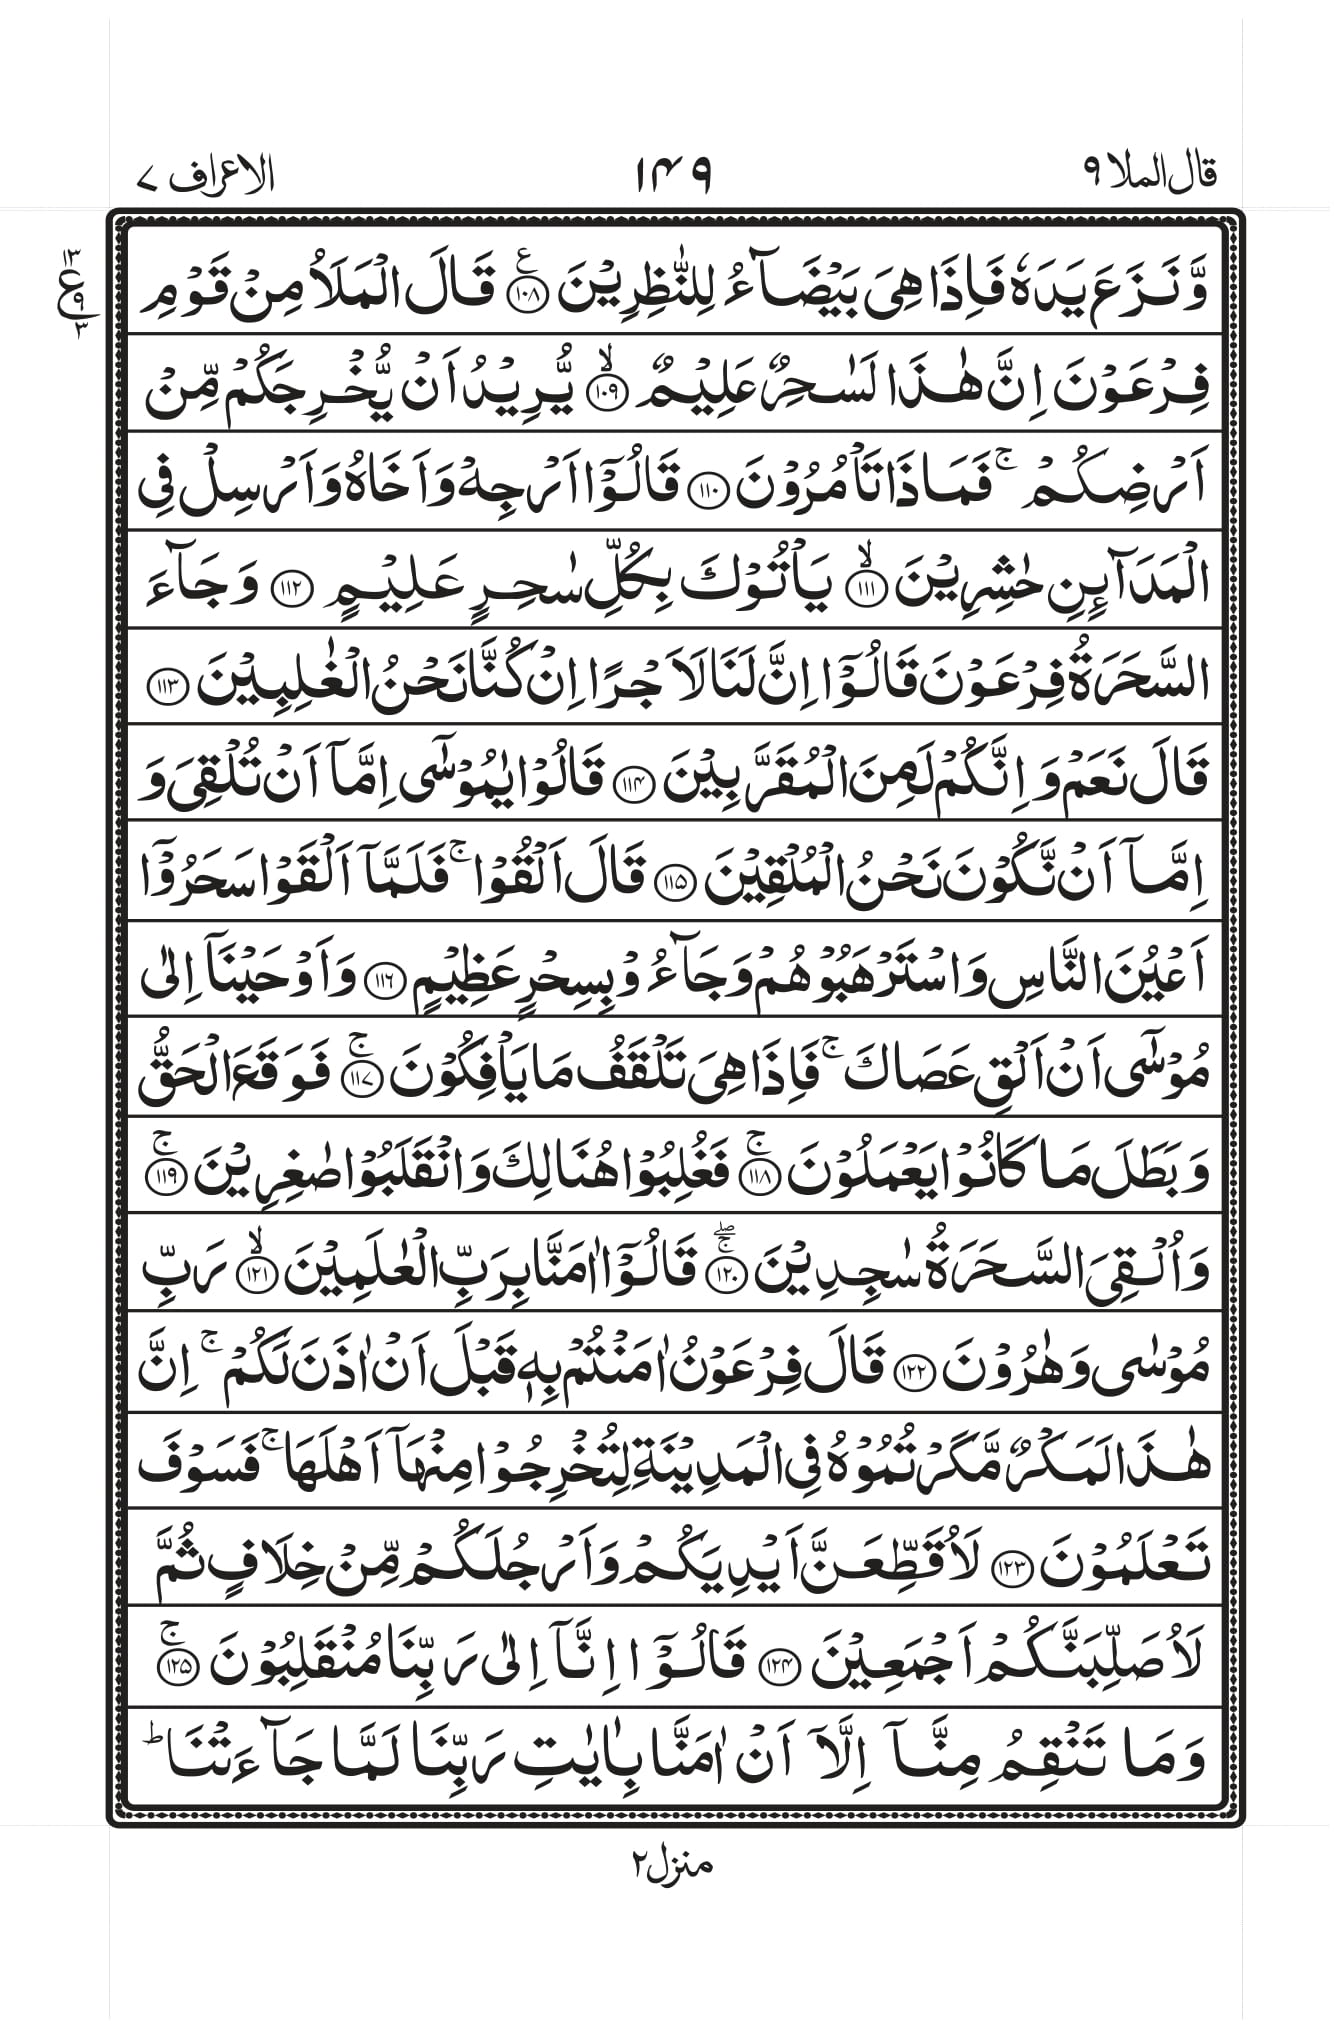 قال الملا ٩
١٤٩
الاعراف ٧
وَّنَزَعَ يَدَهٗ فَاِذَا هِیَ بَيْضَآءُ لِلنّٰظِرِيْنَ ۧ‏﴿١٠٨﴾ قَالَ الْمَلَاُ مِنْ قَوْمِ
١٣
ع
٩
٣
فِرْعَوْنَ اِنَّ هٰذَا لَسٰحِرٌ عَلِيْمٌ ۙ﴿١٠٩﴾ يُّرِيْدُ اَنْ يُّخْرِجَكُمْ مِّنْ
اَرْضِكُمْ ۚ فَمَاذَا تَاْمُرُوْنَ ﴿١١٠﴾ قَالُوْۤا اَرْجِهْ وَاَخَاهُ وَاَرْسِلْ فِی
الْمَدَآىِٕنِ حٰشِرِيْنَ ۙ﴿١١١﴾ يَاْتُوْكَ بِكُلِّ سٰحِرٍ عَلِيْمٍ ﴿١١٢﴾ وَجَآءَ
السَّحَرَةُ فِرْعَوْنَ قَالُوْۤا اِنَّ لَنَا لَاَجْرًا اِنْ كُنَّا نَحْنُ الْغٰلِبِيْنَ ﴿١١٣﴾
قَالَ نَعَمْ وَاِنَّكُمْ لَمِنَ الْمُقَرَّبِيْنَ ﴿١١٤﴾ قَالُوْا يٰمُوْسٰۤی اِمَّاۤ اَنْ تُلْقِیَ وَ
اِمَّاۤ اَنْ نَّكُوْنَ نَحْنُ الْمُلْقِيْنَ ﴿١١٥﴾ قَالَ اَلْقُوْا ۚ فَلَمَّاۤ اَلْقَوْا سَحَرُوْۤا
اَعْيُنَ النَّاسِ وَاسْتَرْهَبُوْهُمْ وَجَآءُوْ بِسِحْرٍ عَظِيْمٍ ﴿١١٦﴾ وَاَوْحَيْنَاۤ اِلٰی
مُوْسٰۤی اَنْ اَلْقِ عَصَاكَ ۚ فَاِذَا هِیَ تَلْقَفُ مَا يَاْفِكُوْنَ ۚ﴿١١٧﴾ فَوَقَعَ الْحَقُّ
وَبَطَلَ مَا كَانُوْا يَعْمَلُوْنَ ۚ﴿١١٨﴾ فَغُلِبُوْا هُنَالِكَ وَانْقَلَبُوْا صٰغِرِيْنَ ۚ﴿١١٩﴾
وَاُلْقِیَ السَّحَرَةُ سٰجِدِيْنَ ۚۖ﴿١٢٠﴾ قَالُوْۤا اٰمَنَّا بِرَبِّ الْعٰلَمِيْنَ ۙ﴿١٢١﴾ رَبِّ
مُوْسٰی وَهٰرُوْنَ ﴿١٢٢﴾ قَالَ فِرْعَوْنُ اٰمَنْتُمْ بِهٖ قَبْلَ اَنْ اٰذَنَ لَكُمْ ۚ اِنَّ
هٰذَا لَمَكْرٌ مَّكَرْتُمُوْهُ فِی الْمَدِيْنَةِ لِتُخْرِجُوْا مِنْهَاۤ اَهْلَهَا ۚ فَسَوْفَ
تَعْلَمُوْنَ ﴿١٢٣﴾ لَاُقَطِّعَنَّ اَيْدِيَكُمْ وَاَرْجُلَكُمْ مِّنْ خِلَافٍ ثُمَّ
لَاُصَلِّبَنَّكُمْ اَجْمَعِيْنَ ﴿١٢٤﴾ قَالُوْۤا اِنَّاۤ اِلٰی رَبِّنَا مُنْقَلِبُوْنَ ۚ﴿١٢٥﴾
وَمَا تَنْقِمُ مِنَّاۤ اِلَّاۤ اَنْ اٰمَنَّا بِاٰيٰتِ رَبِّنَا لَمَّا جَآءَتْنَا ؕ
منزل ٢